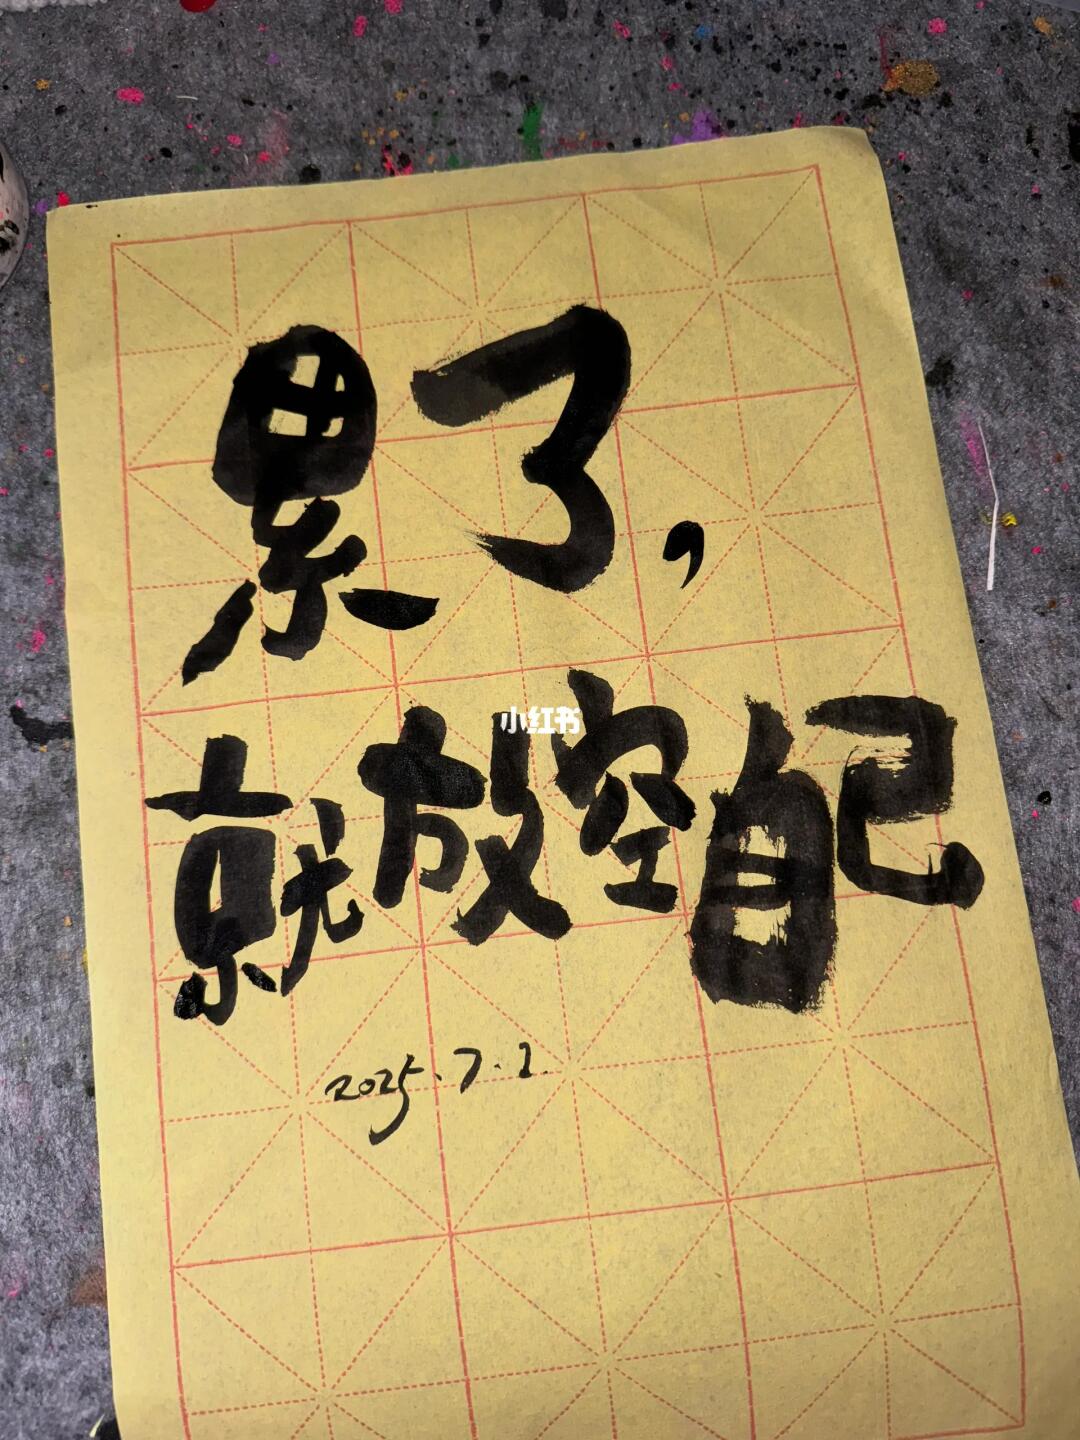 累了,
小红书
就放空自己
2025.7.2.